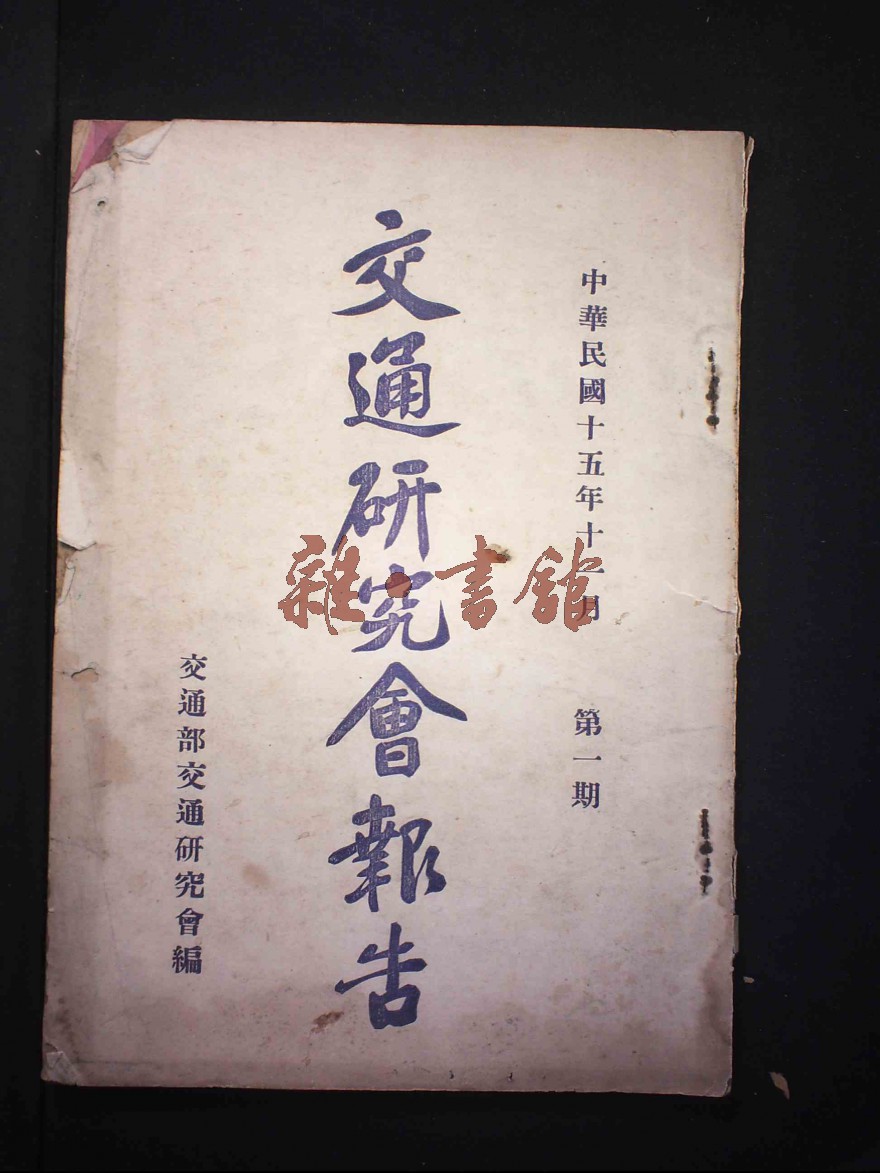 中華民國十五年十一月　第一期
交通研究會報告
交通部交通研究會編
雜·書館